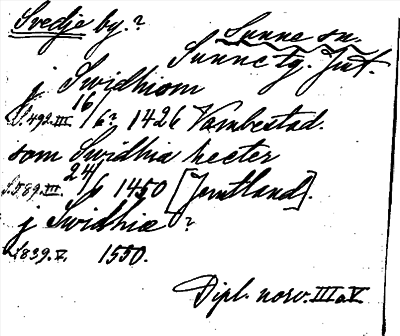 Svedje by.? Sunne sn.
Sunne tg. Jmt.
j Swidhiom
S.492.III. 16/6? 1426 Vambestad.
som Swidhia heeter
S.589.III. 24/6 1450 [Jemtland].
j Swidhiæ ?
S.839.V. 1550.
Dipl. norv. III o. V.